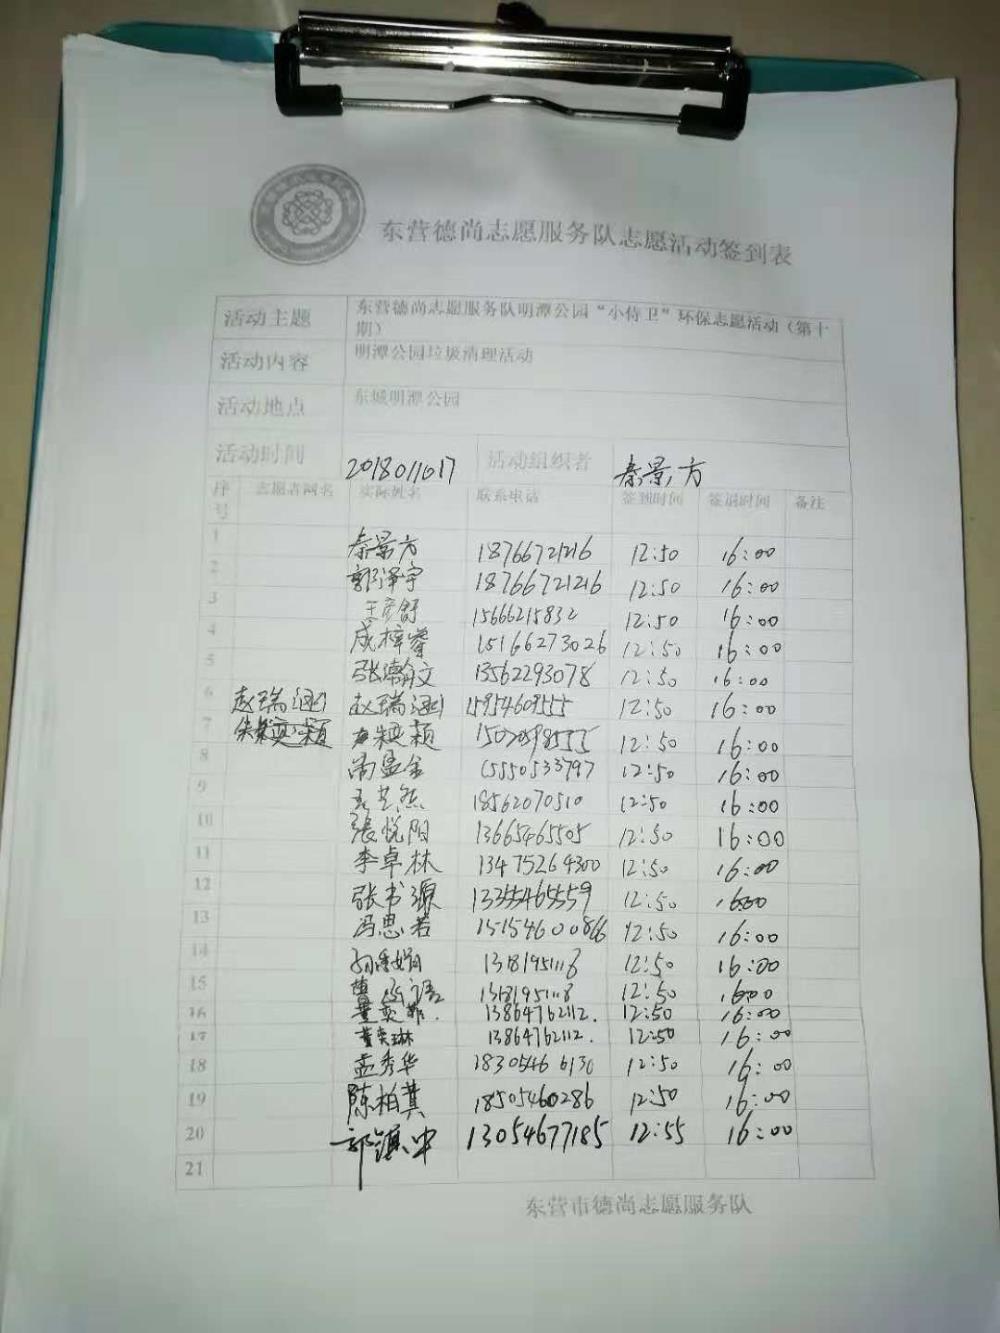 东营德尚志愿服务队志愿活动签到表
活动主题 东营德尚志愿服务队明潭公园“小侍卫”环保志愿活动（第十
期）
活动内容 明潭公园垃圾清理活动
活动地点 东城明潭公园
活动时间 2018011017 活动组织者 秦景方
序号 志愿者网名 实际姓名 联系电话 签到时间 签退时间 备注
1 秦景方 18766721216 12:50 16:00
2 郭泽宇 18766721216 12:50 16:00
3 王彦舒 15666215832 12:50 16:00
4 成梓睿 15166273026 12:50 16:00
5 张瀚文 13562293078 12:50 16:00
6 赵瑞涵 赵瑞涵 15954609555 12:50 16:00
7 12:50 16:00
8 尚孟金 15550533797 12:50 16:00
9 孟艺然 18562070510 12:50 16:00
10 張悦阳 13665465505 12:50 16:00
11 李卓林 13475264300 12:50 16:00
12 张书源 13355465559 12:50 16:00
13 冯思若 15154600866 12:50 16:00
14 13181951118 12:50 16:00
15 13181951118 12:50 16:00
16 董奕菲. 13864762112. 12:50 16:00
17 董奕琳 13864762112. 12:50 16:00
18 孟秀华 18305466130 12:50 16:00
19 陈柏萁 18505460286 12:50 16:00
20 郭镇中 13054677185 12:55 16:00
21
东营市德尚志愿服务队